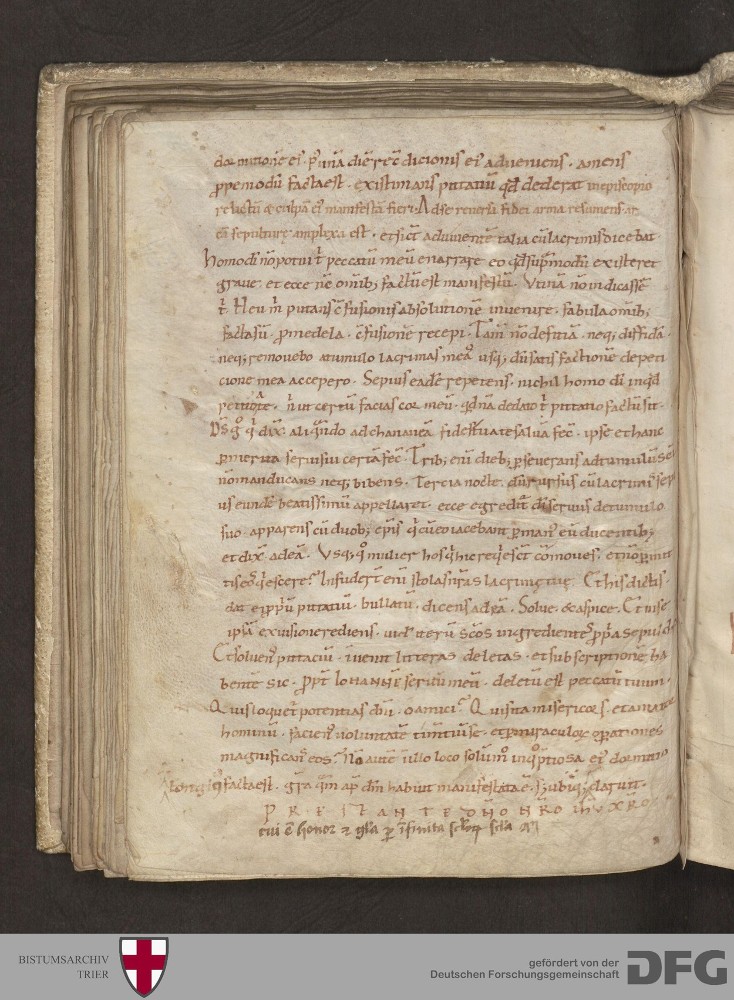 dormitione ei⁹. p⁹ unā diē recͨ dicionis ei⁹ adveniens. amens
ppemodū facta est. existimans pittatiū qđ dederat in episcopio
relictū & culpā ei⁹ manifestā fieri. Ad se reversa fidei arma resumens at
cū sepulturę amplexa est. et sicͭ adviventē talia cū lacrimis dicebat.
homo dī nō potui t̄ peccatū meū enarrare eo qđ supͬ modū existeret
grave. et ecce nc̄ omīb; factū est manifestū. Utinā nō indicassē
t̄. Heu m̄ putans c̄fusionis absolutionē invenire. fabula omīb;
facta sū. p medela. c̄fusionē recepi. Tam̄ nō deficiā. neq; diffidā.
neq; removebo a tumulo lacrimas meas. usq; dū satisfactionē depeti
cione mea accepero. Sepius eadē repetens. nichil homo dī inqđ
peto
n̄ ut certū facias cor meū. qđ nā de dato t̄ pittatio factū sit.
Ds̄ g̊ q̄ dix̄ aliqn̄do ad chananeā fides tua te salvā fec̄. ipse et hanc
p merita servi sui certā fec̄. Trib; enī dieb; pseverans ad tumulū scī
nō manducans neq; bibens. Tercia nocte. dū rursus cū lacrimis sepi
us eundē beatissimū appellaret. ecce egredit̄ dī servus de tumulo
suo. apparens cū duob; ep̄is q̄ cū eo iacebant p man⁹ eū ducentib;
et dix̄ ad eā. Usq; q̊ mulier hos q̄ hic reqescͭ cōmoves. et nō pmit
tis eos q̄escere? Infudert̄ enī stolas nr̄as lacrimę tuę. Et his dictis.
dat ei ppū pittatiū. bullatū. dicens ad eā. Solve. & aspice. Et ut se
ipsā ex visione rediens. vidͭ iterū scōs ingredientes ppa sepulch
Et solvens pittaciū. īvenit litteras deletas. et subscriptionē ha
bentē sic. ppt̄ IOHANNĒ servū meū. deletū est peccatū tuum.
Quis loquet̄ potentias dn̄i. o amici? Quis ita misericors. et amator
hominū. faciens voluntatē timentiū se. et p miraculoꝝ opationes
magnificans eos? Nō autē in illo loco solūmͦ in q̊ ptiosa ei⁹ dormitio
facta est. gr̄a qm̄ ap̄ dm̄ habuit manifestata ē. sꝫ ubiq; claruit.
PRESTANTE DN̄O NR̄O IHV XRO
cui ē honor ⁊ gl̄a p īfinita scl̄oꝝ scl̄a am̄
BISTUMSARCHIV
TRIER
gefördert von der
Deutschen Forschungsgemeinschaft
DFG